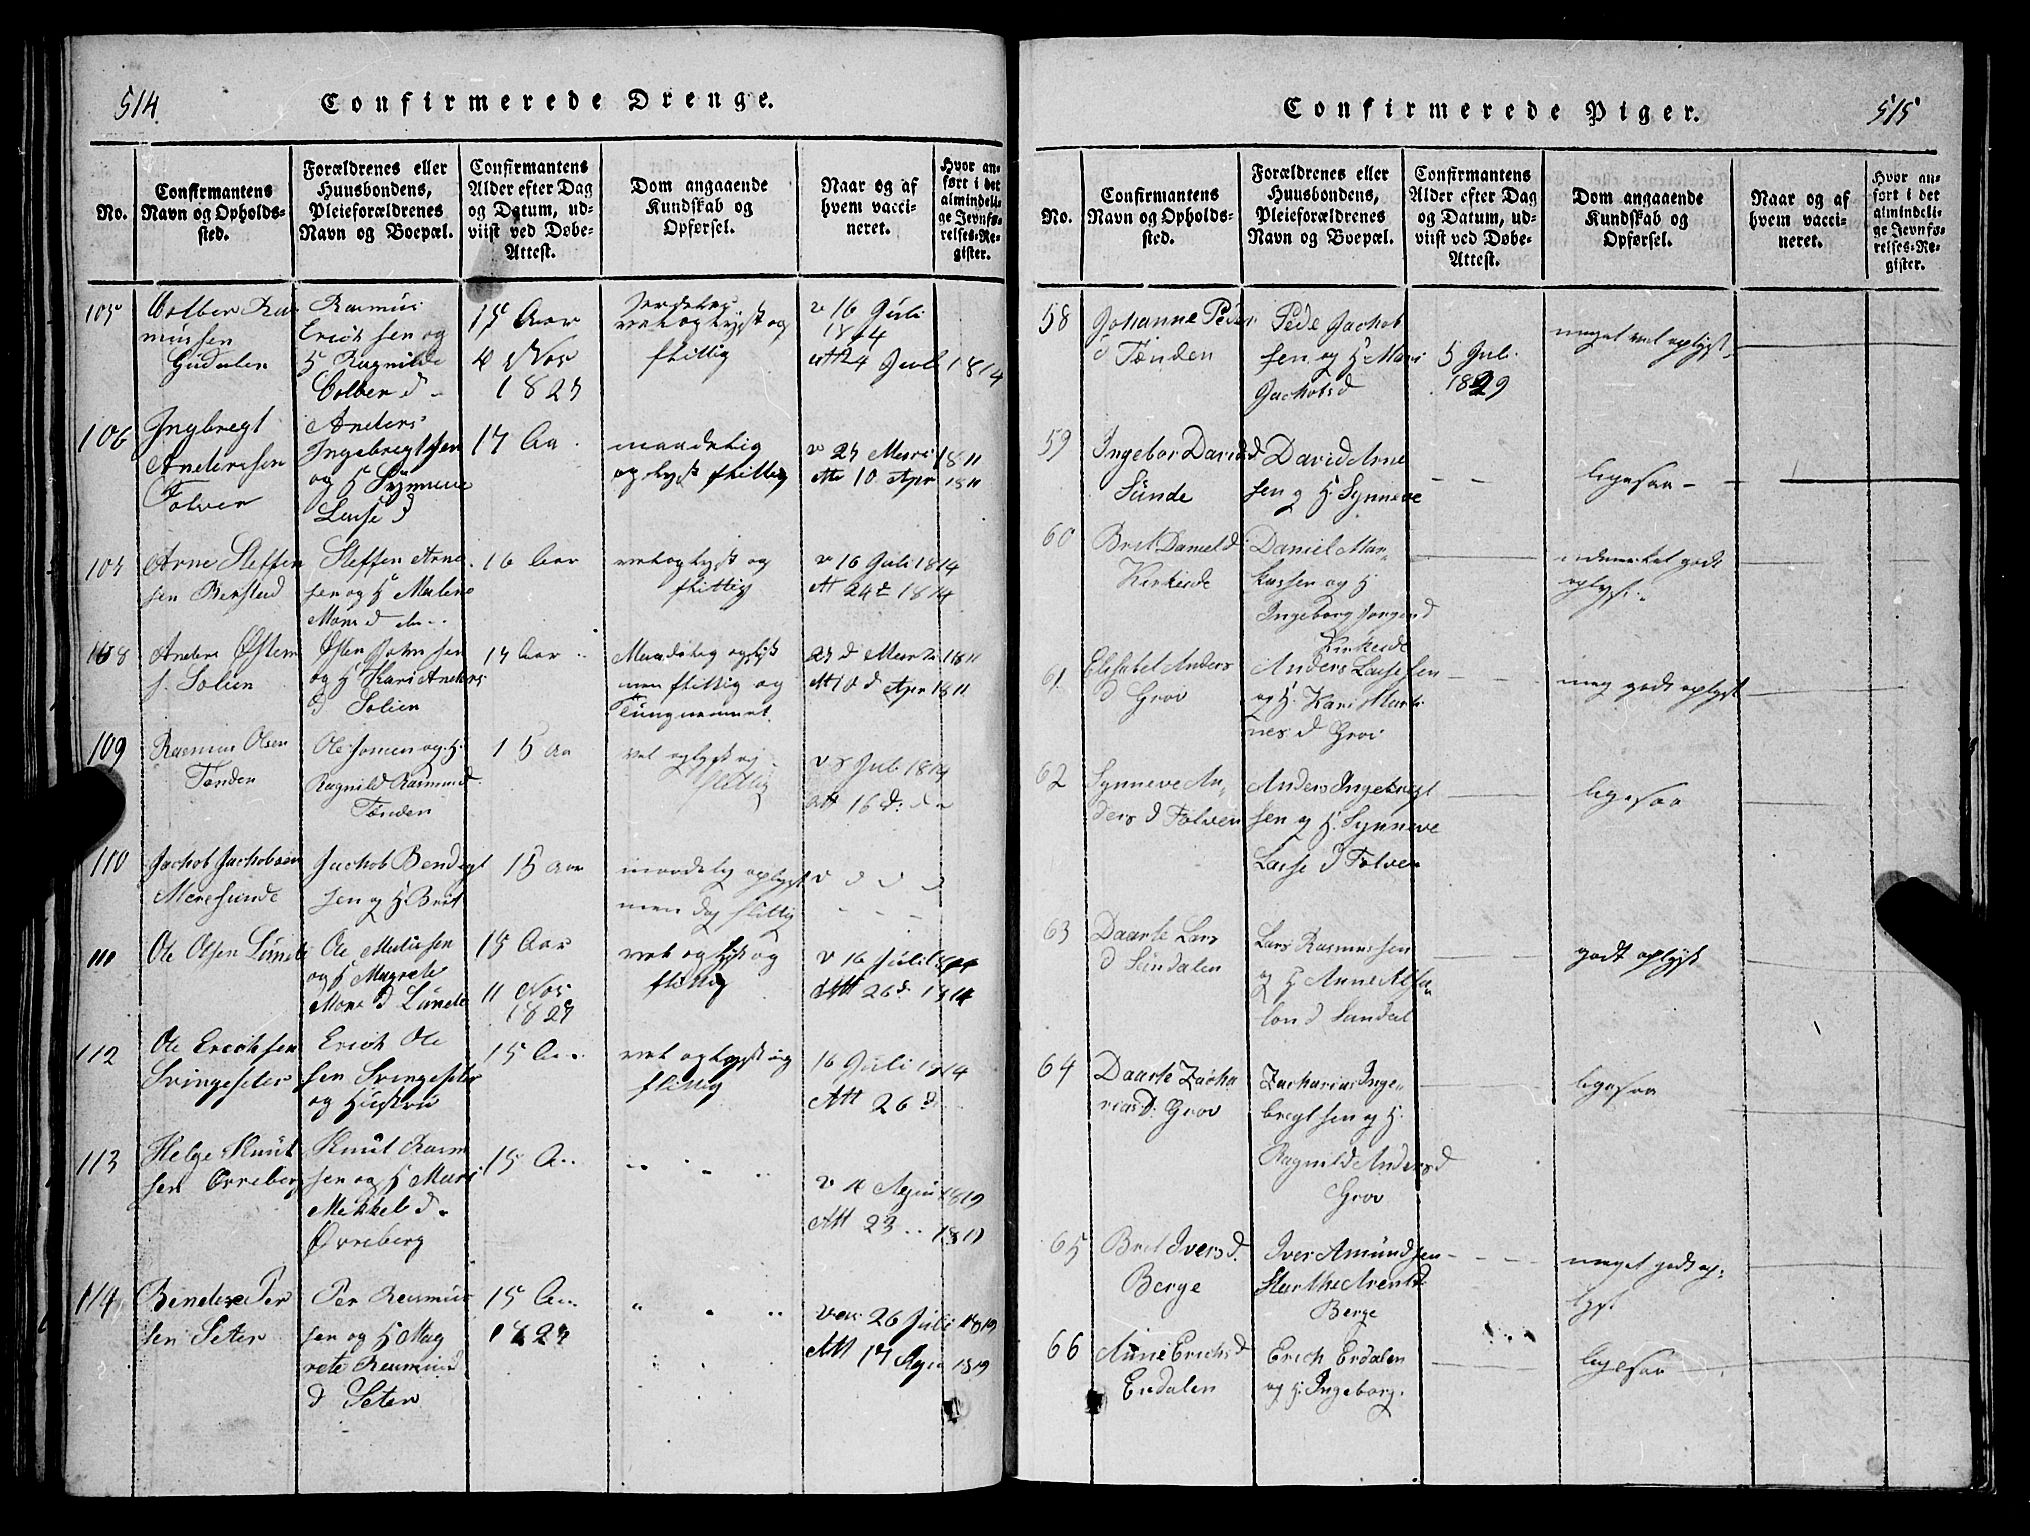 514
Confirmerede Drenge.
No.
Confirmantens
Navn og Opholds-
sted.
Forældrenes eller
Huusbondens,
Pleieforældrenes
Navn og Boepæl.
Confirmantens
Alder efter Dag
og Datum, ud-
viist ved Døbe-
Attest.
Dom angaaende
Kundskab og
Opførsel.
Naar og af
hvem vacci-
neret.
Hvor an-
ført i det
almindeli-
ge Jevnfø-
relses-Re-
gister.
105
Rasmus
Erichsen og
H Ragnilde
15 Aar
4 Nov
og
flittig
v 16 Juli
1814
Att 24 Juli 1814
106
Ingbregt
Andersen
Tolven
Anders
Ingebregtsen
og H Synneve
Larse d
maadelig
oplyst flittig
1811
Att 10 Apr 1811
Arne Steffen
sen
Steffen Arne
sen og H Malene
Mons d
16 Aar
veloplyst og
flittig
v 16 Juli 1814
Att 24d 1814
108
Anders Østen
s. Solien
Østen John sen
og H Kari Anders
d Solien
Maadelig oplyst
men flittig og
Tungnemmet.
1811
Att 10 d Apr 1811
109
Rasmus Olsen
Tonden
Ragnild Rasmus d.
Tonden
15 Aa
vel oplyst og
flittig
v 8 Juli 1814
Att 16 d.
110
Jachob Jachobsen
Meresunde
Jachob Bendigt
sen og H. Brit
15 Aar
maadelig oplyst
men dog flittig
v d d d
111
Ole Olsen Lunde
og H Magrete
Mons d Lunde
15 Aar
11 Nov
vel oplyst og
flittig
v 16 Juli 1814
Att 26 d. 1814
112
Ole Erichsen
Svingeseter
Erich Ole
sen Svingeseter
og Hustrue
15 A..
vel oplyst og
flittig
16 Juli 1814
Att 26 d
113
Helge Knut
sen Ovreberg
Knut Rasm
sen og H Mari
Mikkels d.
Øvreberg
15 A..
1819
Att 23 .. 1819
114
Per
sen Seter
Per Rasmus
sen og H Mag
rete Rasmus d
d Seter
15 A..
26 Juli 1819
Att 17 1819
515
Confirmerede Piger.
No.
Confirmantens
Navn og Opholds-
sted.
Forældrenes eller
Huusbondens,
Pleieforældrenes
Navn og Boepæl.
Confirmantens
Alder efter Dag
og Datum, ud-
viist ved Døbe-
Attest.
Dom angaaende
Kundskab og
Opførsel.
Naar og af
hvem vacci-
neret.
Hvor an-
ført i det
almindeli-
ge Jevnfø-
relses-Re-
gister.
58
Johanne Peder
d Tonden
Pede Jachob
sen og H Mari
Jachobs d
5 Jul.
1829
meget vel oplyst
59
Ingebor Davids d.
Sunde
David Arne
sen og H. Synneve
ligesaa
60
Brit Daniel d
Kirkeide
Daniel Mar-
kussen og H
Ingeborg Jorgens d
Kirkeide
udmerket godt
oplyst.
61
Elisabet Anders
d Grov
Anders Lassesen
og H. Kari Marti
nes d Grov
meg godt oplyst
62
Synneve An-
ders d Tolven
Anders Ingebregt
sen og H. Synneve
Larse d Tolven
ligesaa
63
Daarte Lars
d Sundalen
Lars Rasmussen
og H Anne Absa-
lon d Sundal
godt oplyst
64
Daarte Zacha
rias d. Grov
Zacharias Inge-
bregtsen og H.
Ragnild Anders d
Grov
ligesaa
65
Brit Ivers d.
Berge
Iver Amundsen
Marthe Arents d
Berge
meget godt op-
lyst
66
Anne Erichs d
Erdalen
Erich Erdalen
og H. Ingeborg.
ligesaa